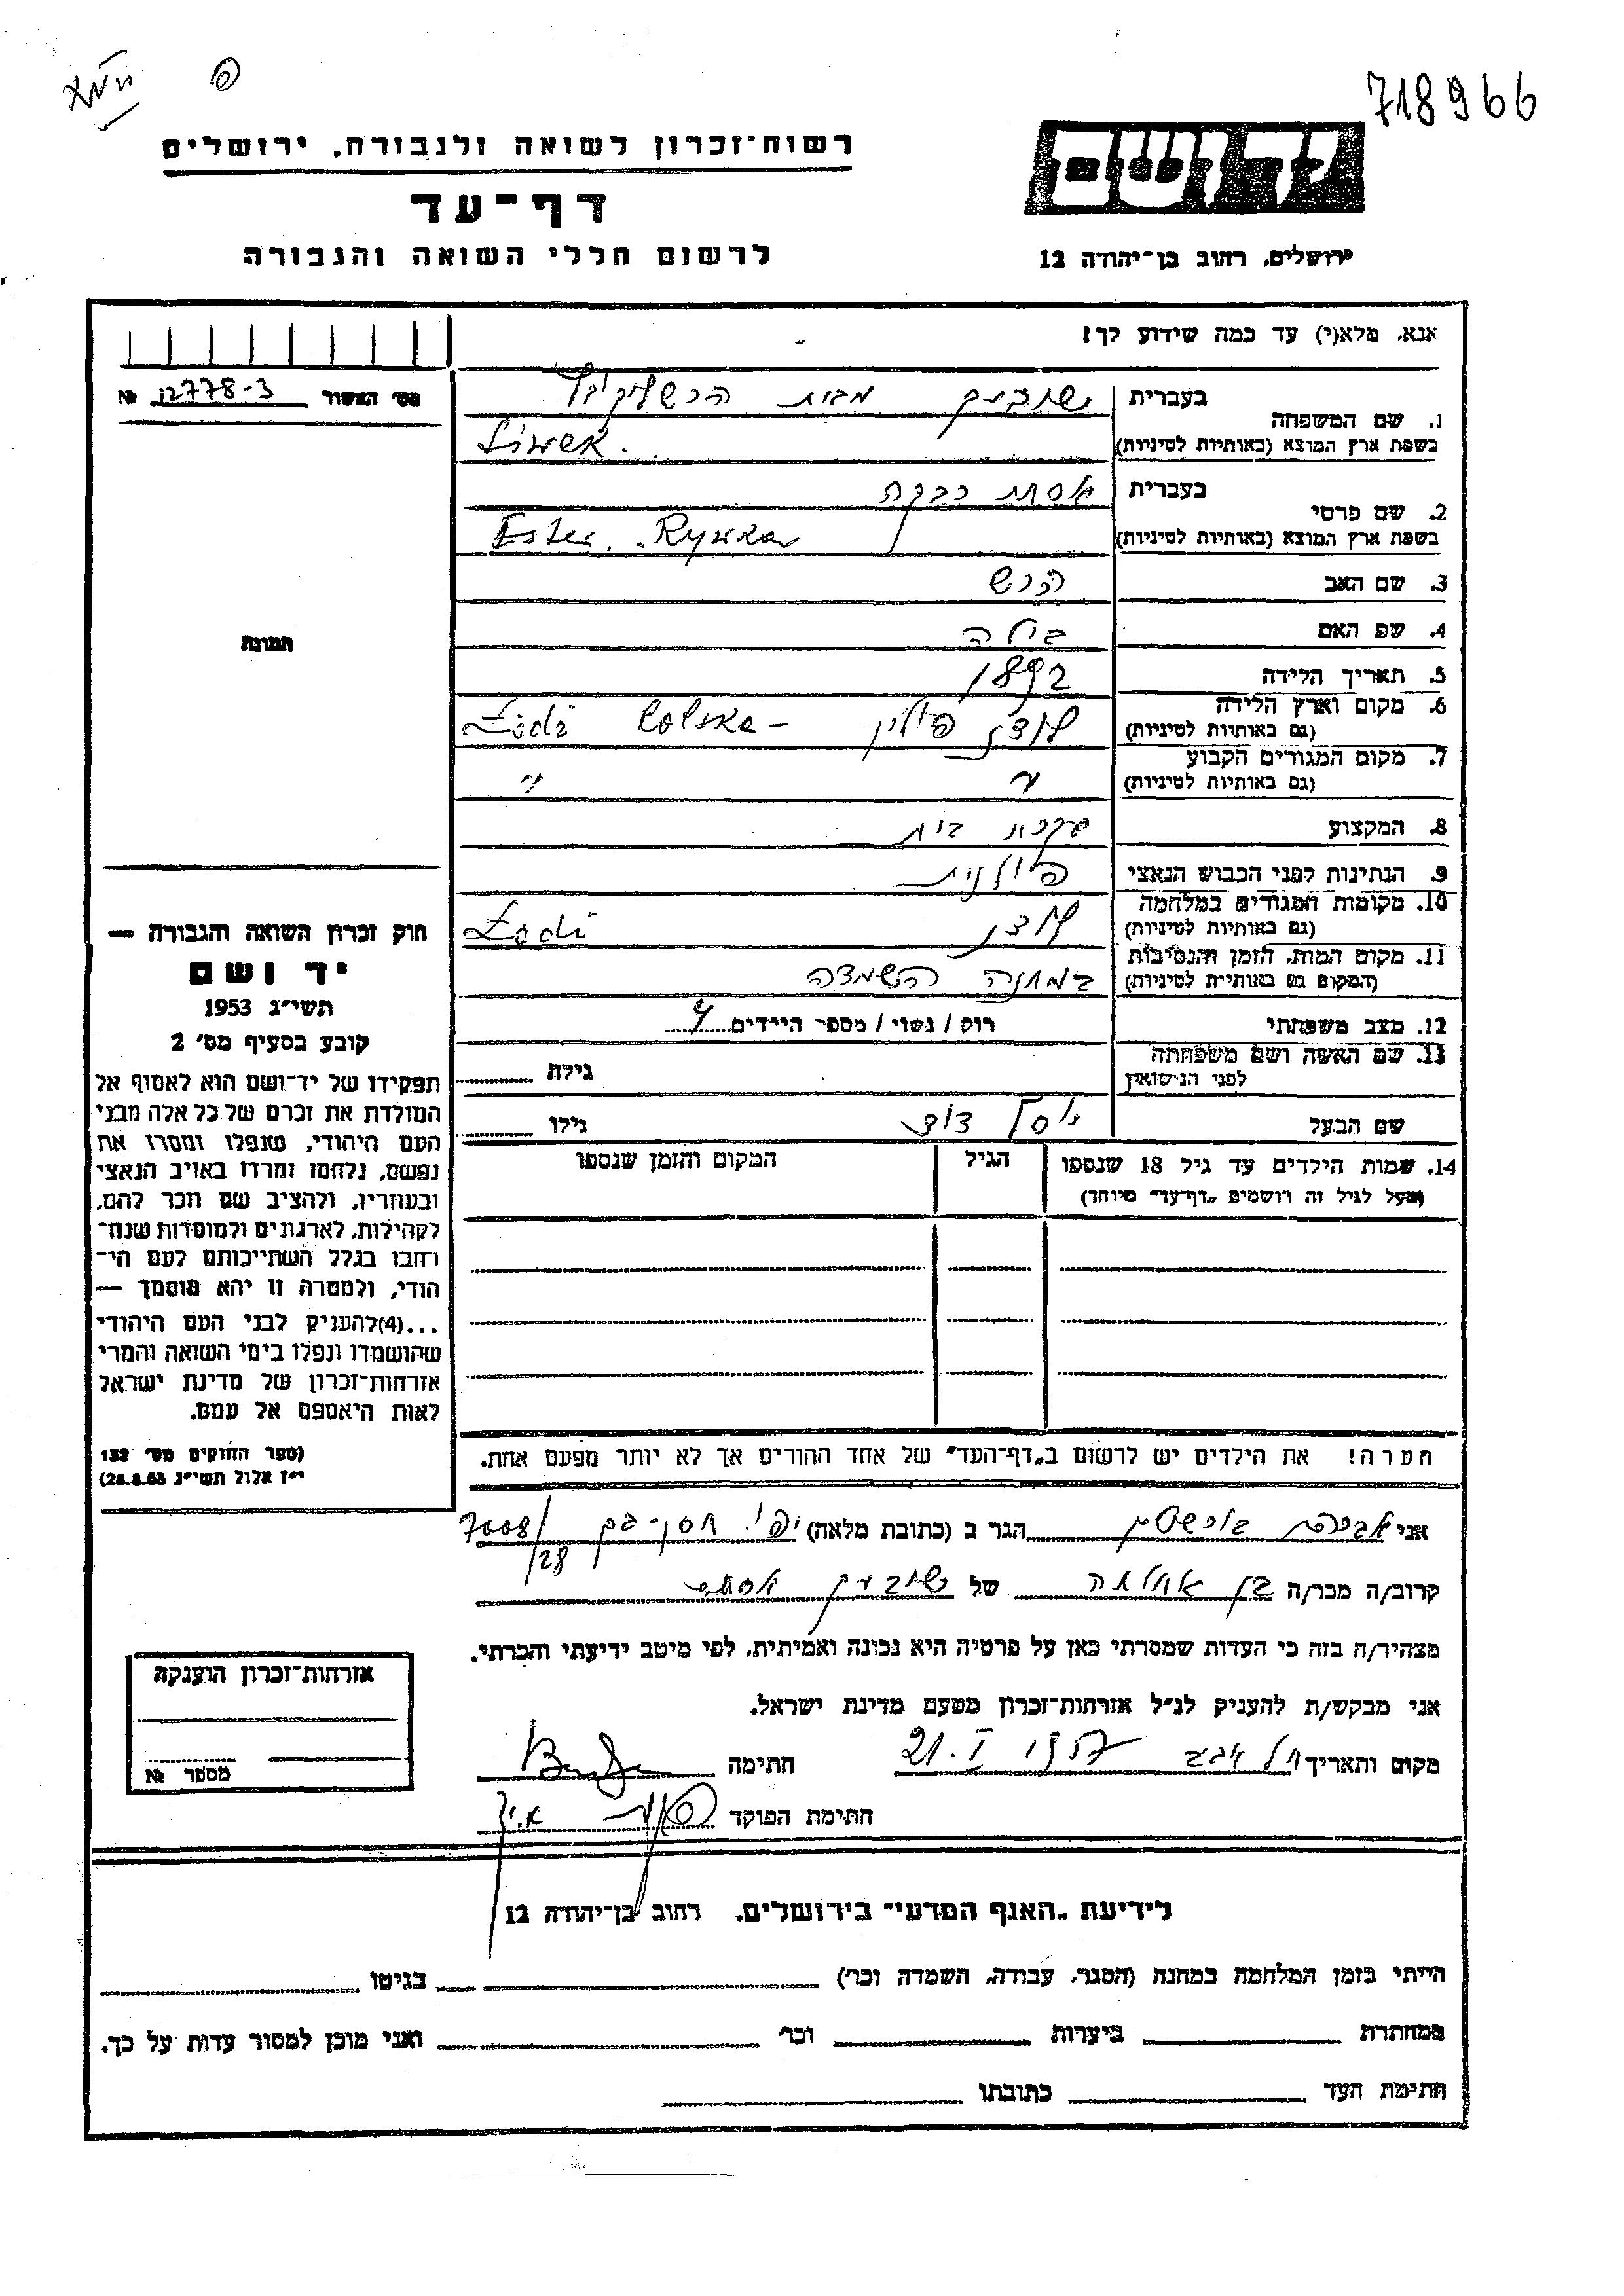 718966
רשות־זכרון לשואה ולגבורה, ירושלים
דף־עד
לרשום חללי השואה והגבורה
יד ושם
ירושלים, רחוב בן־יהודה 12
אנא, מלא(י) עד כמה שידוע לך!
מס׳ האשור 12778-3 №
1. שם המשפחה
בעברית מבית הרשליקוביץ
בשפת ארץ המוצא (באותיות לטיניות) Siwek
2. שם פרטי
בעברית אסתר רבקה
בשפת ארץ המוצא (באותיות לטיניות) Ester Rywka
3. שם האב הרש
4. שם האם בילה
5. תאריך הלידה 1892
6. מקום וארץ הלידה (גם באותיות לטיניות) לודז׳ פולין – Polska Łódź
7. מקום המגורים הקבוע (גם באותיות לטיניות) " "
8. המקצוע עקרת בית
9. הנתינות לפני הכבוש הנאצי פולנית
10. מקומות המגורים במלחמה (גם באותיות לטיניות) לודז׳ Łódź
11. מקום המות, הזמן והנסיבות (המקום גם באותיות לטיניות) במחנה השמדה
12. מצב משפחתי רוק / נשוי / מספר הילדים 4
13. שם האשה ושם משפחתה לפני הנישואין גילה
שם הבעל יוסף דוד גילו
14. שמות הילדים עד גיל 18 שנספו (מעל לגיל זה רושמים „דף־עד״ מיוחד) הגיל המקום והזמן שנספו
הערה! את הילדים יש לרשום ב„דף־העד״ של אחד ההורים אך לא יותר מפעם אחת.
תמונה
חוק זכרון השואה והגבורה —
יד ושם
תשי״ג 1953
קובע בסעיף מס׳ 2
תפקידו של יד־ושם הוא לאסוף אל
המולדת את זכרם של כל אלה מבני
העם היהודי, שנפלו ומסרו את
נפשם, נלחמו ומרדו באויב הנאצי
ובעוזריו, ולהציב שם וזכר להם,
לקהילות, לארגונים ולמוסדות שנח־
רבו בגלל השתייכותם לעם הי־
הודי, ולמטרה זו יהא מוסמך —
...(4)להעניק לבני העם היהודי
שהושמדו ונפלו בימי השואה והמרי
אזרחות־זכרון של מדינת ישראל
לאות היאספם אל עמם.
(ספר החוקים מס׳ 132
י״ז אלול תשי״ג 28.8.53)
אני אברהם בורנשטין הגר ב (כתובת מלאה) יפו, חסן־בק 7008/28
קרוב/ה מכר/ה בן אחותה של אסתר
מצהיר/ה בזה כי העדות שמסרתי כאן על פרטיה היא נכונה ואמיתית, לפי מיטב ידיעתי והכרתי.
אני מבקש/ת להעניק לנ״ל אזרחות־זכרון מטעם מדינת ישראל.
מקום ותאריך תל אביב 21.I 1957 חתימה
חתימת הפוקד
אזרחות־זכרון הוענקה
מספר №
לידיעת „האגף המדעי״ בירושלים, רחוב בן־יהודה 12
הייתי בזמן המלחמה במחנה (הסגר, עבודה, השמדה וכו׳) בגיטו
במחתרת ביערות וכו׳ ואני מוכן למסור עדות על כך.
חתימת העד כתובתו